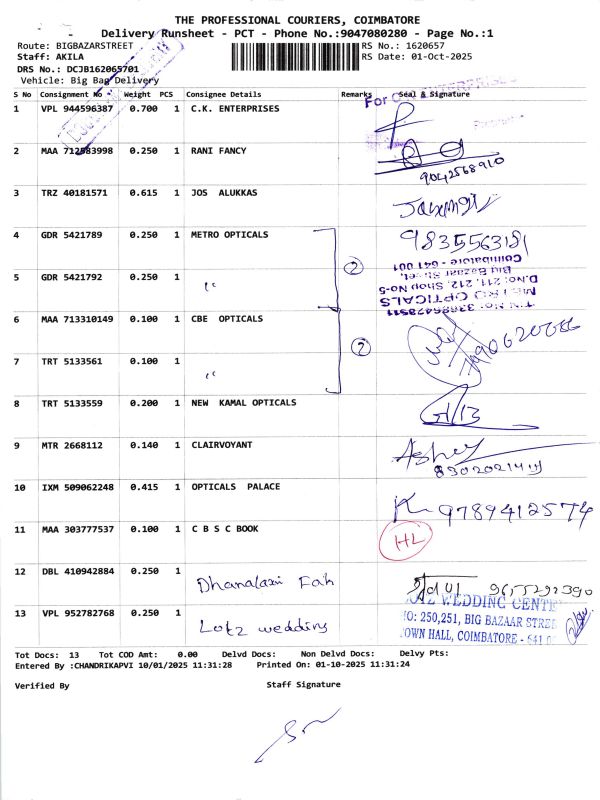 THE PROFESSIONAL COURIERS, COIMBATORE
Delivery Runsheet - PCT - Phone No.:9047080280 - Page No.:1
Route: BIGBAZARSTREET RS No.: 1620657
Staff: AKILA RS Date: 01-Oct-2025
DRS No.: DCJB162065701
Vehicle: Big Bag Delivery
S No Consignment No Weight PCS Consignee Details Remarks Seal & Signature
For
1 VPL 944596387 0.700 1 C.K. ENTERPRISES
2 MAA 712583998 0.250 1 RANI FANCY
9042568910
3 TRZ 40181571 0.615 1 JOS ALUKKAS
4 GDR 5421789 0.250 1 METRO OPTICALS 9835563181
Coimbatore - 641 001
Big Bazaar Street,
D.No: 211, 212, Shop No-5
METRO OPTICALS
5 GDR 5421792 0.250 1 " 2
6 MAA 713310149 0.100 1 CBE OPTICALS
7 TRT 5133561 0.100 1 " 2
8 TRT 5133559 0.200 1 NEW KAMAL OPTICALS
9 MTR 2668112 0.140 1 CLAIRVOYANT
10 IXM 509062248 0.415 1 OPTICALS PALACE
9789412574
11 MAA 303777537 0.100 1 C B S C BOOK
12 DBL 410942884 0.250 1 Dhanalaxi Fah 9655292390
13 VPL 952782768 0.250 1 Lotz wedding
WEDDING CENTRE
NO: 250,251, BIG BAZAAR STREE
TOWN HALL, COIMBATORE - 641 0
Tot Docs: 13 Tot COD Amt: 0.00 Delvd Docs: Non Delvd Docs: Delvy Pts:
Entered By :CHANDRIKAPVI 10/01/2025 11:31:28 Printed On: 01-10-2025 11:31:24
Verified By Staff Signature